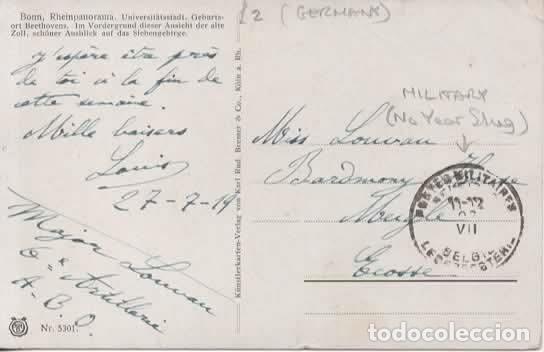 £2 (GERMANY)
Bonn, Rheinpanorama. Universitätsstadt. Geburts-
ort Beethovens. Im Vordergrund dieser Ansicht der alte
Zoll, schöner Ausblick auf das Siebengebirge.
J'espère être près
de toi à la fin de
cette semaine.
Mille baisers
Louis
27-7-19
Major Louvau
Artillerie
A.B.O.
Nr. 5301.
Künstlerkarten-Verlag von Karl Rud. Bremer & Co., Köln a. Rh.
MILITARY
(No Year Slug)
Miss Louvau
Bardmony House
Meigle
Ecosse
POSTES MILITAIRES
11-12
VII
BELGIE
todocoleccion